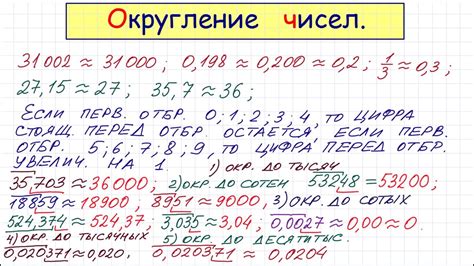 Округление чисел.
31 002 ≈ 31 000; 0,198 ≈ 0,200 ≈ 0,2; 1/3 ≈ 0,3;
27,15 ≈ 27; 35,7 ≈ 36;
ЕСЛИ ПЕРВ. ОТБР. 0; 1; 2; 3; 4, ТО ЦИФРА
СТОЯЩ. ПЕРЕД ОТБР. ОСТАЕТСЯ, ЕСЛИ ПЕРВ.
ОТБР. 5; 6; 7; 8; 9, ТО ЦИФРА ПЕРЕД ОТБР.
УВЕЛИЧ. НА 1 1) ОКР. ДО ТЫСЯЧ
35,703 ≈ 36000; 2) ОКР. ДО СОТЕН 53248 ≈ 53200;
18859 ≈ 18900 8951 ≈ 9000, 3) ОКР. ДО СОТЫХ
524,374 ≈ 524,37; 3,035 ≈ 3,04; 0,0027 ≈ 0,00 ≈ 0.
4) ОКР. ДО ТЫСЯЧНЫХ 5) ОКР. ДО ДЕСЯТИТЫС.
0,020371 ≈ 0,020, 0,020371 ≈ 0,0204